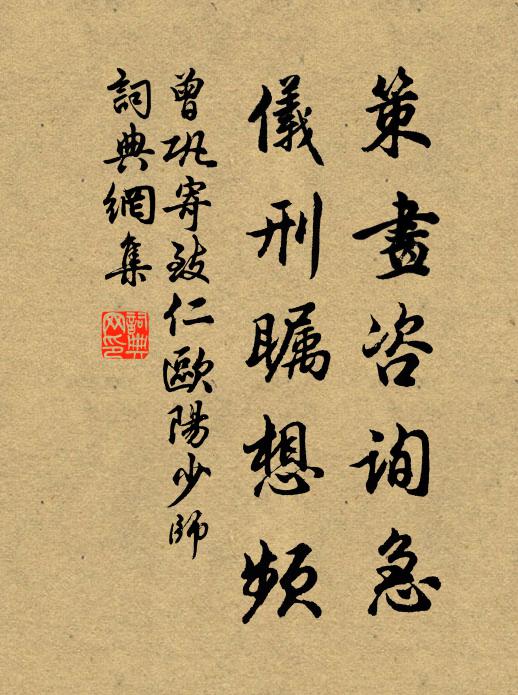 策畫咨詢急
儀刑瞩想頻
曾巩寄致仁歐陽少師
詞典網集
詞典
网印